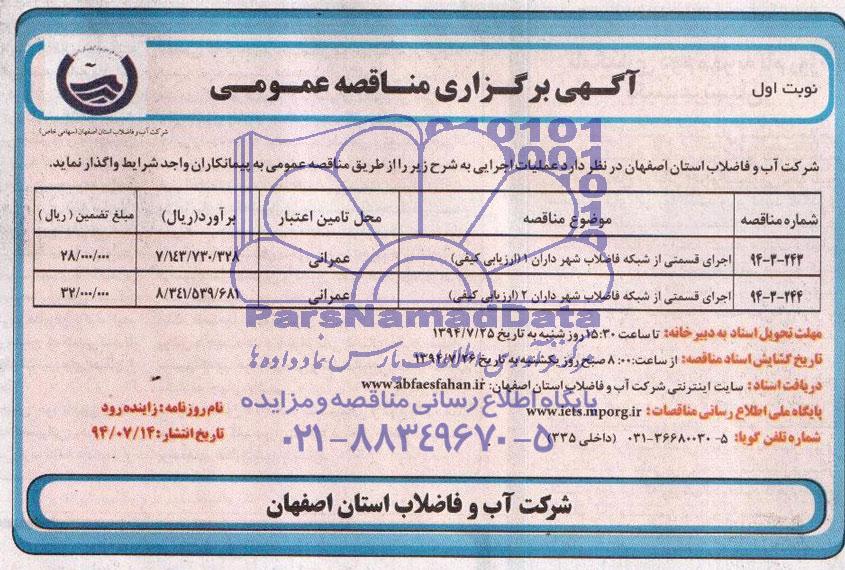 نوبت اول
آگهی برگزاری مناقصه عمومی
شرکت آب و فاضلاب استان اصفهان (سهامی خاص)
شرکت آب و فاضلاب استان اصفهان در نظر دارد عملیات اجرایی به شرح زیر را از طریق مناقصه عمومی به پیمانکاران واجد شرایط واگذار نماید.
شماره مناقصه موضوع مناقصه محل تامین اعتبار برآورد(ریال) مبلغ تضمین (ریال)
۹۴-۳-۲۴۳ اجرای قسمتی از شبکه فاضلاب شهر داران ۱ (ارزیابی کیفی) عمرانی ۷/۱۴۳/۷۳۰/۳۲۸ ۲۸۰/۰۰۰/۰۰۰
۹۴-۳-۲۴۴ اجرای قسمتی از شبکه فاضلاب شهر داران ۲ (ارزیابی کیفی) عمرانی ۸/۳۴۱/۵۳۹/۶۸۱ ۳۲۰/۰۰۰/۰۰۰
مهلت تحویل اسناد به دبیرخانه: تا ساعت ۱۵:۳۰ روز شنبه به تاریخ ۱۳۹۴/۷/۲۵
تاریخ گشایش اسناد مناقصه: از ساعت ۸:۰۰ صبح روز یکشنبه به تاریخ ۱۳۹۴/۷/۲۶
دریافت اسناد: سایت اینترنتی شرکت آب و فاضلاب استان اصفهان: www.abfaesfahan.ir
پایگاه ملی اطلاع رسانی مناقصات: www.iets.mporg.ir
شماره تلفن گویا: ۵-۳۶۶۸۰۰۳۰-۰۳۱ (داخلی ۳۳۵)
نام روزنامه: زاینده رود
تاریخ انتشار: ۹۴/۰۷/۱۴
شرکت آب و فاضلاب استان اصفهان
ParsNamadData
پارس نماد داده ها
پایگاه اطلاع رسانی مناقصه و مزایده
۰۲۱-۸۸۳۴۹۶۷۰-۵